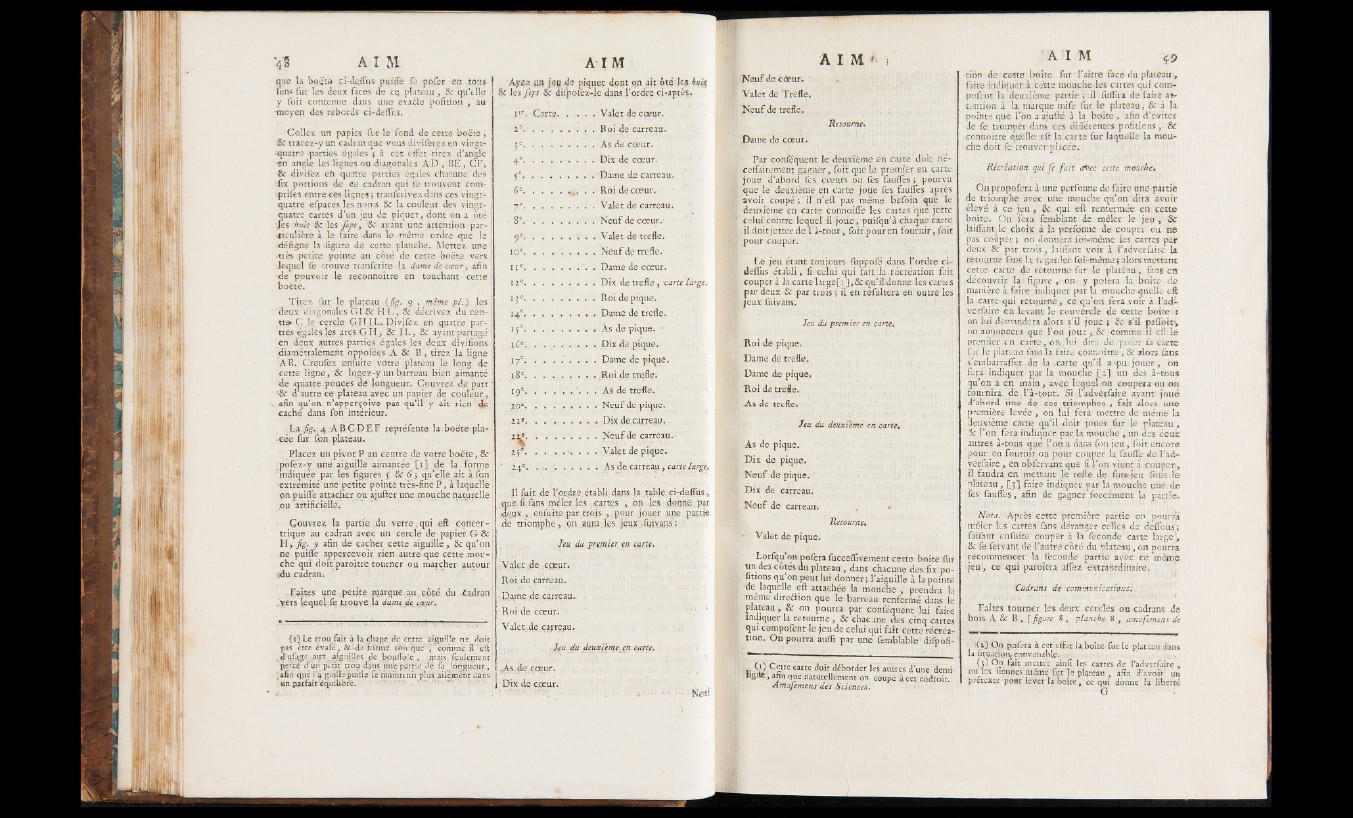 48 A I M
que la boëte ci-dessus puisse se poser en tous
sens sur les deux faces de ce plateau, & qu'elle
y soit contenue dans une exacte position, au
moyen des rebords ci-dessus.
Collez un papier sur le fond de cette boëte,
& tracez-y un cadran que vous diviserez en vingt-
quatre parties égales; à cet effet tirez d'angle
en angle les lignes ou diagonales AD, BE, CF,
& divisez en quatre parties égales chacune des
six portions de ce cadran qui se trouvent com-
prises entre ces lignes; transcrivez dans ces vingt-
quatre espaces les noms & la couleur des vingt-
quatre cartes d'un jeu de piquet, dont on a ôté
les huit & les sept, & ayant une attention par-
ticulière à le faire dans le même ordre que le
désigne la figure de cette planche. Mettez une
très petite pointe au côté de cette boëte vers
lequel se trouve transcrite la dame de cœur, afin
de pouvoir le reconnoître en touchant cette
boëte.
Tirez sur le plateau (fig. 9, même pl.) les
deux diagonales GI & HL, & décrivez du cen-
tre C le cercle GHIL. Divisez en quatre par-
ties égales les arcs GH, & IL, & ayant partagé
en deux autres parties égales les deux divisions
diamétralement opposées A & B, tirez la ligne
AB. Creusez ensuite votre plateau le long de
cette ligne, & logez-y un barreau bien aimanté
de quatre pouces de longueur. Couvrez de part
& d'autre ce plateau avec un papier de couleur,
afin qu'on n'apperçoive pas qu'il y ait rien de
caché dans son intérieur.
La fig. 4 A B C D E F représente la boëte pla-
cée sur son plateau.
Placez un pivot P au centre de votre boëte, &
posez-y une aiguille aimantée [1] de la forme
indiquée par les figures 5 & 6; qu'elle ait à son
extrémité une petite pointe très-fine P, à laquelle
on puisse attacher ou ajuster une mouche naturelle
ou artificielle.
Couvrez la partie du verre qui est concen-
trique au cadran avec un cercle de papier G &
H, fig. 9 afin de cacher cette aiguille, & qu'on
ne puisse appercevoir rien autre que cette mou-
che qui doit paroître tourner ou marcher autour
du cadran.
Faites une petite marque au côté du cadran
vers lequel se trouve la dame de cœur.
(1) Le trou fait à la chape de cette aiguille ne doit
pas être évasé, & de forme cônique, comme il est
d'usage aux aiguilles de boussole, mais seulement
percé d'un petit trou dans une partie de sa longueur,
afin que l'aiguille puisse se maintenir plus aisément dans
un parfait équilibre.
A I M
Ayez un jeu de piquet dont on ait ôté les huit
& les sept & disposez-le dans l'ordre ci-après.
1re. Carte. . . . . . Valet de cœur.
2e. . . . . . . . . Roi de carreau.
3e. . . . . . . . . As de cœur.
4e. . . . . . . . . Dix de cœur.
5e. . . . . . . . . Dame de carreau.
6e. . . . . . . . . Roi de cœur.
7e. . . . . . . . . Valet de carreau.
8e. . . . . . . . . Neuf de cœur.
9e. . . . . . . . . Valet de trefle.
10e. . . . . . . . . Neuf de trefle.
11e. . . . . . . . . Dame de cœur.
12e. . . . . . . . . Dix de trefle, carte large.
13e. . . . . . . . . Roi de pique.
14e. . . . . . . . . Dame de trefle.
15e. . . . . . . . . As de pique.
16e. . . . . . . . . Dix de pique.
17e. . . . . . . . . Dame de pique.
18e. . . . . . . . . Roi de trefle.
19e. . . . . . . . . As de trefle.
20e. . . . . . . . . Neuf de pique.
21e. . . . . . . . . Dix de carreau.
22e. . . . . . . . . Neuf de carreau.
23e. . . . . . . . . Valet de pique.
24e. . . . . . . . . As de carreau, carte large.
Il suit de l'ordre établi dans la table ci-dessus,
que si sans mêler les cartes, on les donne par
deux, ensuite par trois, pour jouer une partie
de triomphe, on aura les jeux suivans:
Jeu du premier en carte.
Valet de cœur.
Roi de carreau.
Dame de carreau.
Roi de cœur.
Valet de carreau.
Jeu du deuxième en carte.
As de cœur.
Dix de cœur.
Neuf
A I M
Neuf de cœur.
Valet de Trefle.
Neuf de trefle.
Retourne.
Dame de cœur.
Par conséquent le deuxième en carte doit né-
cessairement gagner, soit que le premier en carte
joue d'abord ses cœurs ou ses fausses; pourvu
que le deuxième en carte joue ses fausses après
avoir coupé; il n'est pas même besoin que le
deuxième en carte connoisse les cartes que jette
celui contre lequel il joue, puisqu'à chaque carte
il doit jetter de l'à-tout, soit pour en fournir, soit
pour couper.
Le jeu étant toujours supposé dans l'ordre ci-
dessus établi, si celui qui fait la récréation fait
couper à la carte large [1], & qu'il donne les cartes
par deux & par trois; il en résultera en outre les
jeux suivans.
Jeu du premier en carte.
Roi de pique.
Dame de trefle.
Dame de pique.
Roi de trefle.
As de trefle.
Jeu du deuxième en carte.
As de pique.
Dix de pique.
Neuf de pique.
Dix de carreau.
Neuf de carreau.
Retourne.
Valet de pique.
Lorsqu'on posera successivement cette boite sur
un des côtés du plateau, dans chacune des six po-
sitions qu'on peut lui donner; l'aiguille à la pointe
de laquelle est attachée la mouche, prendra la
même direction que le barreau renfermé dans le
plateau, & on pourra par conséquent lui faire
indiquer la retourne, & chacune des cinq cartes
qui composent le jeu de celui qui fait cette récréa-
tion. On pourra aussi par une semblable disposi-
(1) Cette carte doit déborder les autres d'une demi-
ligne, afin que naturellement on coupe à cet endroit.
Amusemens des Sciences.
A I M 49
tion de cette boîte sur l'autre face du plateau,
faire indiquer à cette mouche les cartes qui com-
posent la deuxième partie; il suffira de faire at-
tention à la marque mise sur le plateau, & à la
pointe que l'on a ajusté à la boîte, afin d'éviter
de se tromper dans ces différentes positions, &
connoître quelle est la carte sur laquelle la mou-
che doit se trouver placée.
Récréation qui se fait avec cette mouche.
On proposera à une personne de faire une partie
de triomphe avec une mouche qu'on dira avoir
élevé à ce jeu, & qui est renfermée en cette
boîte. On fera semblant de mêler le jeu, &
laissant le choix à la personne de couper ou ne
pas couper; on donnera soi-même les cartes par
deux & par trois, laissant voir à l'adversaire la
retourne sans la regarder soi-même; alors mettant
cette carte de retourne sur le plateau, sans en
découvrir la figure, on y posera la boîte de
manière à faire indiquer par la mouche quelle est
la carte qui retourne, ce qu'on fera voir à l'ad-
versaire en levant le couvercle de cette boîte:
on lui demandera alors s'il joue; & s'il passoit,
on annoncera que l'on joue, & comme il est le
premier en carte, on lui dira de poser sa carte
sur le plateau sans la faire connoître, & alors sans
s'embarrasser de la carte qu'il a pu jouer, on
fera indiquer par la mouche [2] un des à-tous
qu'on a en main, avec lequel on coupera ou on
fournira de l'à-tout. Si l'adversaire ayant joué
d'abord une de ces triomphes, fait alors une
première levée, on lui fera mettre de même la
deuxième carte qu'il doit jouer sur le plateau,
& l'on fera indiquer par la mouche, un des deux
autres à-tous que l'on a dans son jeu, soit encore
pour en fournir ou pour couper la fausse de l'ad-
versaire, en observant que si l'on vient à couper,
il faudra en mettant le reste de son jeu sous le
plateau, [3] faire indiquer par la mouche une de
ses fausses, afin de gagner forcément la partie.
Nota. Après cette première partie on pourra
mêler les cartes sans déranger celles de dessous;
faisant ensuite couper à la seconde carte large,
& se servant de l'autre côté du plateau, on pourra
recommencer la seconde partie avec ce même
jeu, ce qui paroîtra assez extraordinaire.
Cadrans de communications.
Faites tourner les deux cercles ou cadrans de
bois A & B, [figure 8, planche 8, amusemens de
(2) On posera à cet effet la boîte sur le plateau dans
la situation convenable.
(3) On fait mettre ainsi les cartes de l'adversaire,
ou les siennes même sur le plateau, afin d'avoir un
prétexte pour lever la boîte, ce qui donne la liberté
G